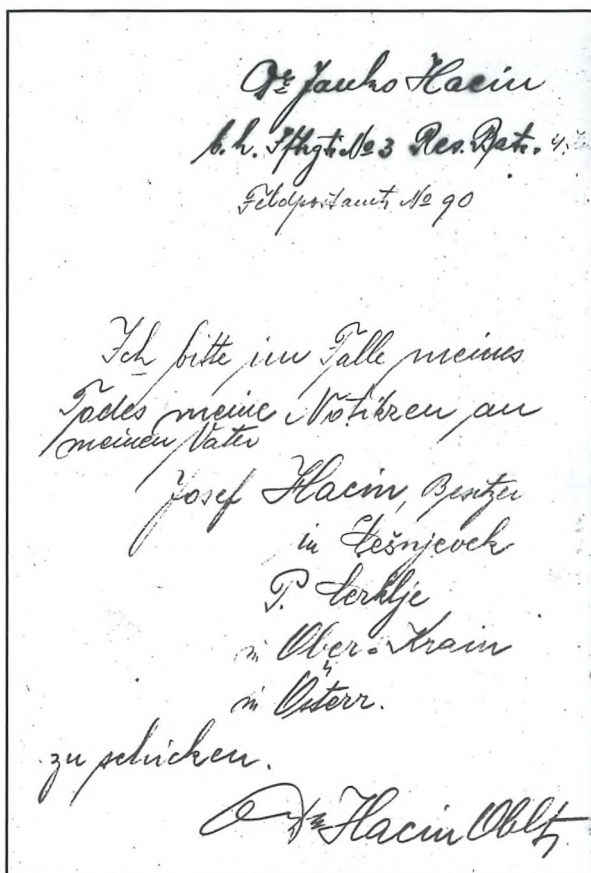 Dr Janko Hacin
b. h. Iftrgt. № 3 Res. Batr.
Feldpostamt № 90
Ich bitte im Falle meines
Todes meine Notizen an
meinen Vater
Josef Hacin, Besitzer
in Češnjevek
P. Cerklje
in Ober-Krain
in Österr.
zu schicken.
Dr Hacin Oblt